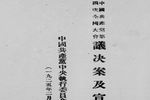 中國共產黨第
四次全國大會
議決案及宣
中國共產黨中央執行委員
一九二五年二月